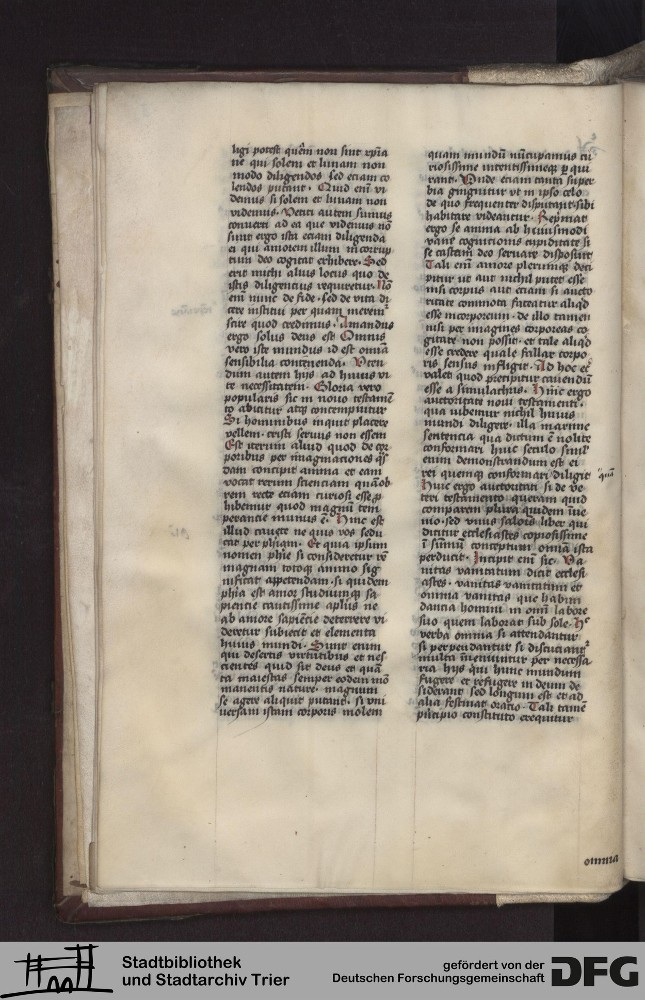 ligi potest quem non sint xpia
ne qui solem et lunam non
modo diligendos sed eciam co
lendos putant. Quid enī vi
demus si solem et lunam non
videmus. Vetiti autem sumus
converti ad ea que videmus nō
sunt ergo ista eciam diligenda
ei qui amorem illum incorrup
tum deo cogitat exhibere. Sed
erit michi alius locus quo de
istis diligentius requiretur. Nō
em nunc de fide. sed de vita di
cere institui per quam meremᷣ
scire quod credimus. Amandus
ergo solus deus est Omnis
vero iste mundus id est omīa
sensibilia contempnenda. Vten
dum autem hijs ad huius vi
te necessitatem. Gloria vero
popularis sic in nouo testamē
to abicitur atqȝ contempnitur
Si hominibus inquit placere
vellem. cristi seruus non essem
Est iterum aliud quod de cor
poribus per ymaginaciones qͥs
dam concipit anima et eam
vocat rerum scienciam quāob
rem recte eciam curiosi esse ꝓ
hibemur quod magnū tem
perancie munus ē. Hinc est
illud cauete ne quis vos sedu
cat per phiam. Et quia ipsum
nomen phie si consideretur rē
magnam totoqȝ animo sig
nificat appetendam. si quidem
phia est amor studiumqȝ sa
piencie cautissime aplus ne
ab amore sapiētie deterrere vi
deretur subiecit et elementa
huius mundi. Sunt enim
qui desertis virtutibus et nes
cientes quid sit deus et quā
ta maiestas semper eodem mō
manentis nature. magnum
se agere aliquit putant. si vni
uersam istam corporis molem
quam mundū nūcupamus cu
riosissime intentissimeqȝ ꝑqui
rant. Vnde eciam tanta super
bia gingnitur vt in ipso celo
de quo frequenter disputant sibi
habitare videantur. Repīmat
ergo se anima ab huiusmodi
vane cognicionis cupiditate si
se castam deo seruare disposuit
Tali enī amore plerumqȝ deci
pitur ut aut nichil putet esse
nisi corpus aut eciam si aucto
ritate commota fateatur aliqͥd
esse incorporeum. de illo tamen
nisi per ymagines corporeas co
gitare non possit. et tale aliqͥd
esse credere quale fallax corpo
ris sensus infligit. Ad hoc eciā
valet quod precipitur cauendū
esse a simulachris. Hinc ergo
auctoritate noui testamenti.
qua iubemur nichil huius
mundi diligere. illa maxime
sentencia qua dictum ē nolite
conformari huic seculo simul
enim demonstrandum est ei
rei quemqȝ conformari diligit
quā
Huic ergo auctoritati si de ve
teri testamento queram quid
comparem plura quidem īue
nio. sed vnus salōis liber qui
dicitur ecclesiastes copiosissime
ī sūmū contemptum omīa ista
perducit. Incipit enī sic. Va
nitas vanitatum dixit ecclesi
astes. vanitas vanitatum et
omnia vanitas que habun
dancia homini in omī labore
suo quem laborat sub sole. Hᵉ
verba omnia si attendantur
si perpendantur si discuciantᷣ
multa inueniuntur per necessa
ria hijs qui hunc mundum
fugere et refugere in deum de
siderant sed longum est et ad
alia festinat oratio. Tali tamē
pͥncipio constituto exequitur
omnia
Stadtbibliothek
und Stadtarchiv Trier
gefördert von der
Deutschen Forschungsgemeinschaft
DFG